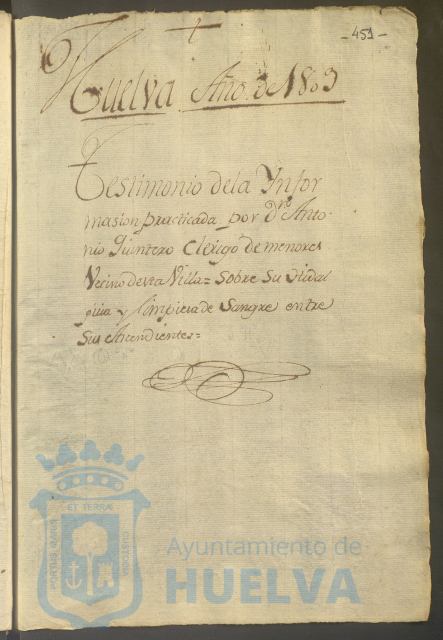 -451-
Huelva Año de 1803
Testimonio dela Infor
masion practicada por Dn. Anto
nio Quintero Clerigo de menores
Vecino desta Villa = Sobre Su Hidal
guia y Limpieza de Sangre entre
Sus Acendientes =
ET TERRÆ
PORTUS MARIS
CUSTODIA
Ayuntamiento de
HUELVA